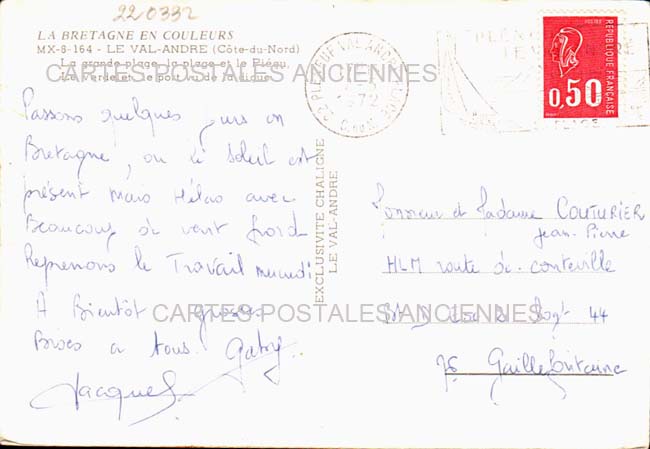 220332
LA BRETAGNE EN COULEURS
MX-8-164 - LE VAL-ANDRE (Côte-du-Nord)
La grande plage, la plage et le Piégu,
Le Verdelet, le port
CARTES POSTALES ANCIENNES
PLENEUF VAL ANDRE
22
1972
C. DU N.
PLENEUF
LE VAL ANDRE
PLAGE
POSTES
REPUBLIQUE FRANÇAISE
0,50
Passons quelques jours en
Bretagne, ou le soleil est
présent mais Hélas avec
Beaucoup de vent froid
Reprenons le Travail mercredi
A Bientôt grosses
Bises a tous. Gaby
Jacques
EXCLUSIVITE CHALIGNE
LE VAL-ANDRE
Monsieur et Madame COUTURIER
Jean-Pierre
HLM route de conteville
Bt D Esc 2 Logt 44
76 Gaillefontaine
CARTES POSTALES ANCIENNES